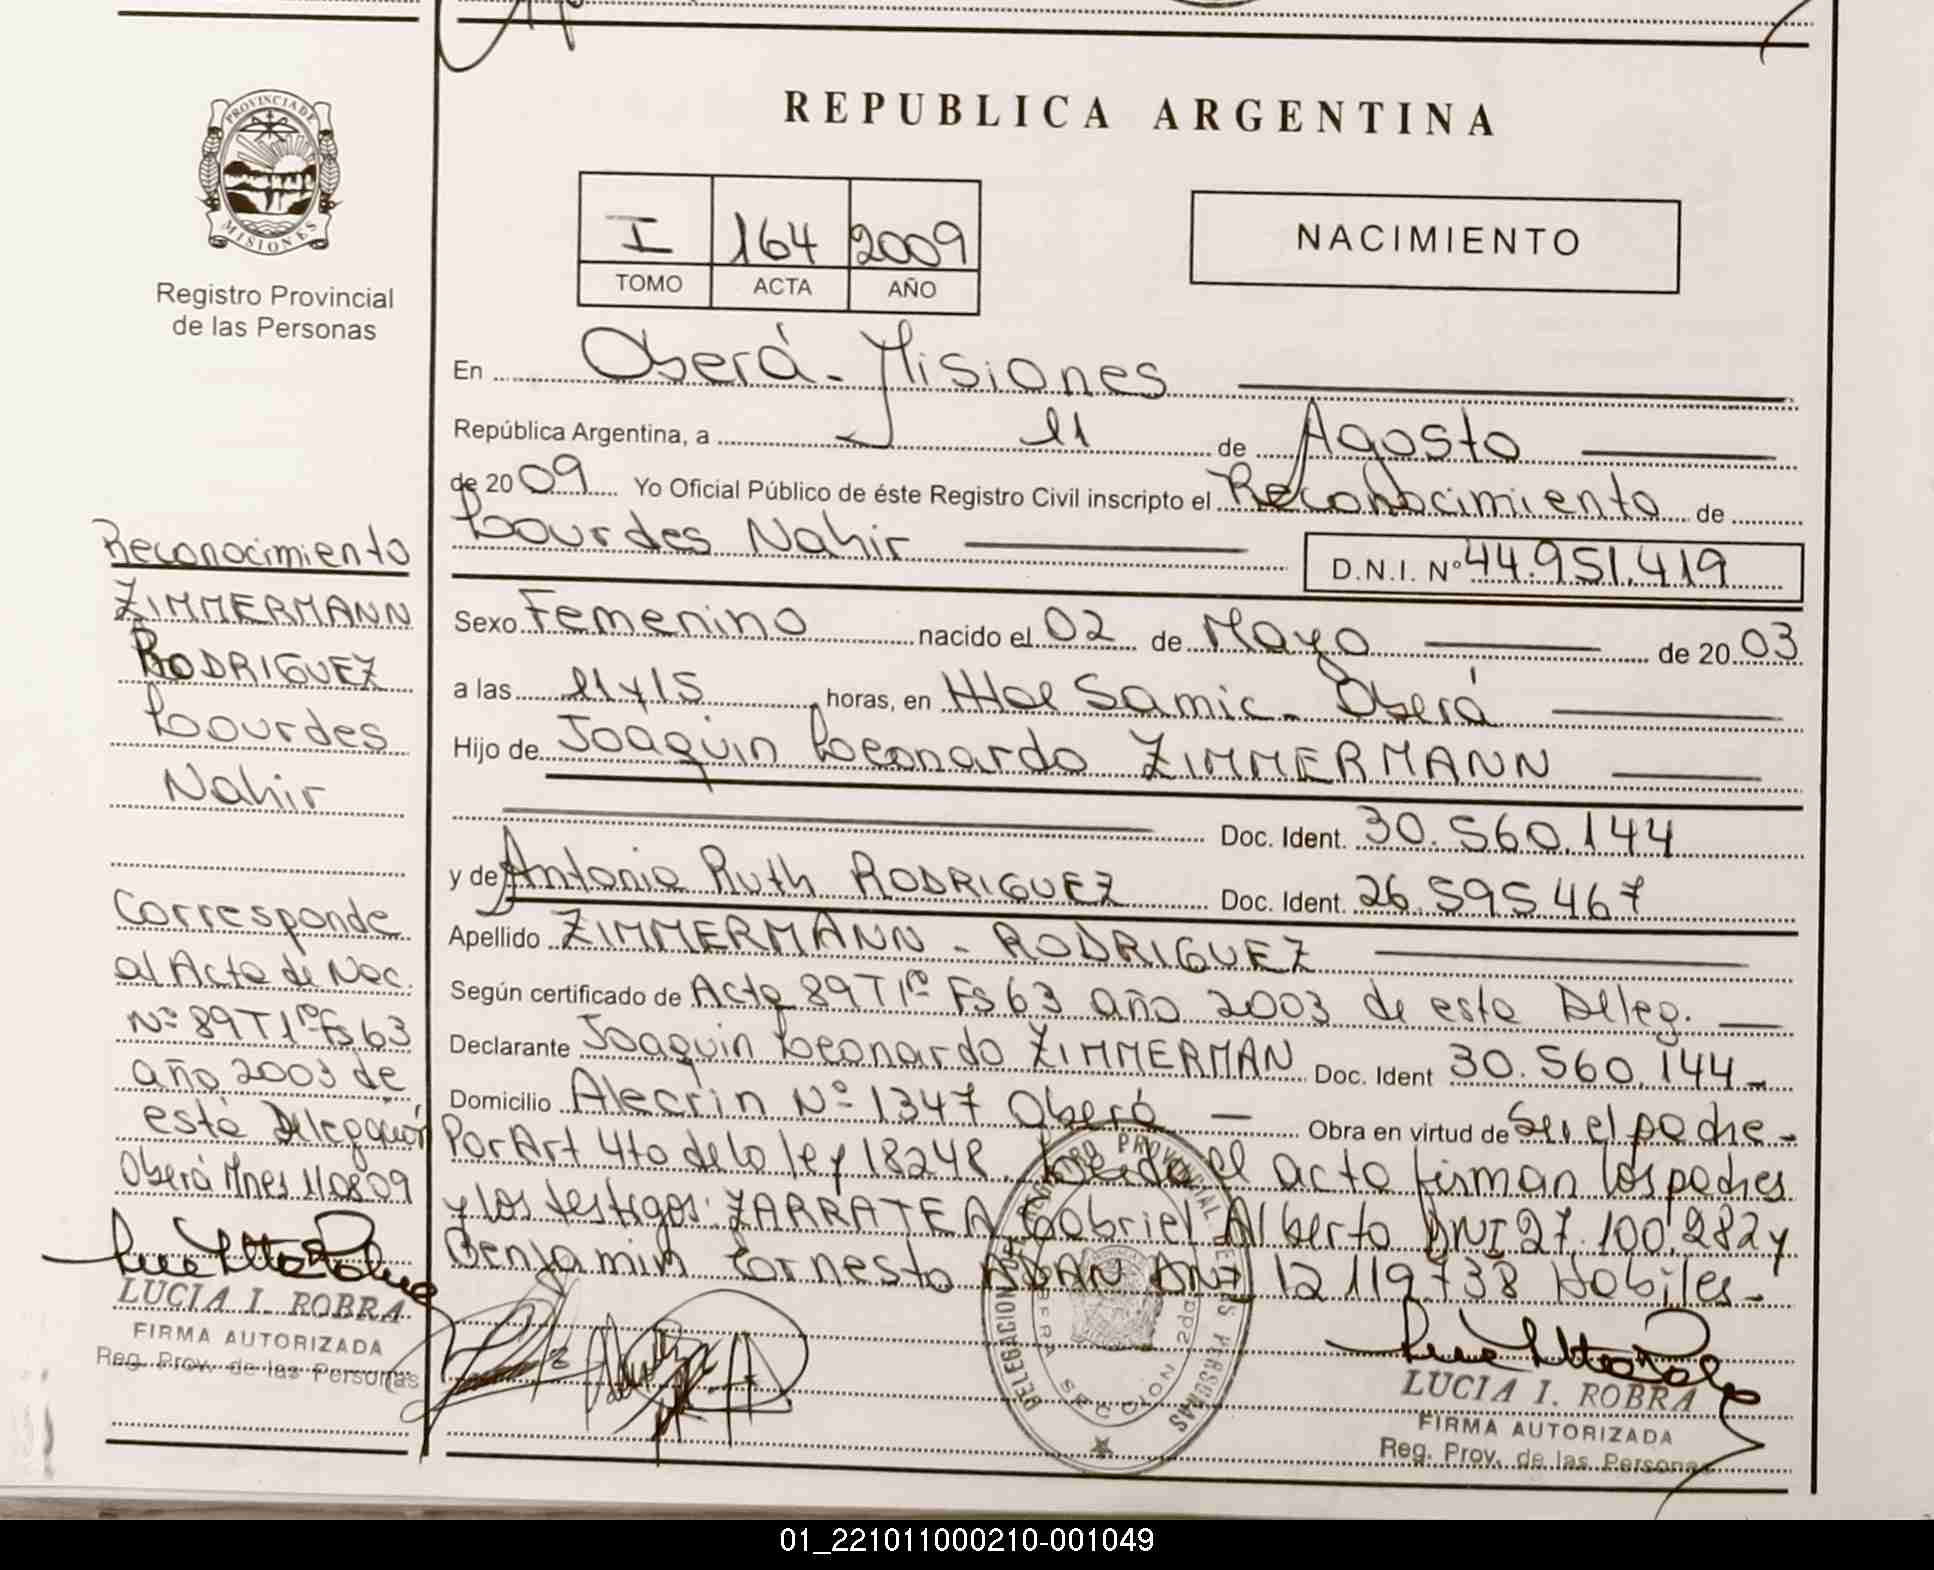 REPUBLICA ARGENTINA
PROVINCIA DE
MISIONES
Registro Provincial
de las Personas
I 164 2009
TOMO ACTA AÑO
NACIMIENTO
En Oberá - Misiones
República Argentina, a 11 de Agosto
de 2009 Yo Oficial Público de éste Registro Civil inscripto el Reconocimiento de
Lourdes Nahir D.N.I. Nº 44.951.419
Sexo Femenino nacido el 02 de Mayo de 2003
a las 11 y 15 horas, en Samic - Oberá
Hijo de Joaquin Leonardo ZIMMERMANN
Doc. Ident. 30.560.144
y de Antonia Ruth RODRIGUEZ Doc. Ident. 26.595.467
Apellido ZIMMERMANN - RODRIGUEZ
Según certificado de Acta 89 T 1º Fs 63 año 2003 de esta Deleg.
Declarante Joaquin Leonardo ZIMMERMAN Doc. Ident 30.560.144-
Domicilio Alecrin Nº 1347 Oberá - Obra en virtud de Ser el padre -
Por Art 4to de la ley 18248. Leida el acta firman los padres
y los testigos: ZARRATEA Gabriel Alberto DNI 27.100.282 y
Benjamin Ernesto ADAN DNI 12119738 Habiles -
Reconocimiento
ZIMMERMANN
RODRIGUEZ
Lourdes
Nahir
Corresponde
al Acta de Nac.
Nº 89 T 1º Fs 63
año 2003 de
esta Delegación
Oberá Mnes 110809
LUCIA I. ROBRA
FIRMA AUTORIZADA
Reg. Prov. de las Personas
PROVINCIAL
DELEGACION
PERSONAS
SECCION 2da
LUCIA I. ROBRA
FIRMA AUTORIZADA
Reg. Prov. de las Personas
01_221011000210-001049